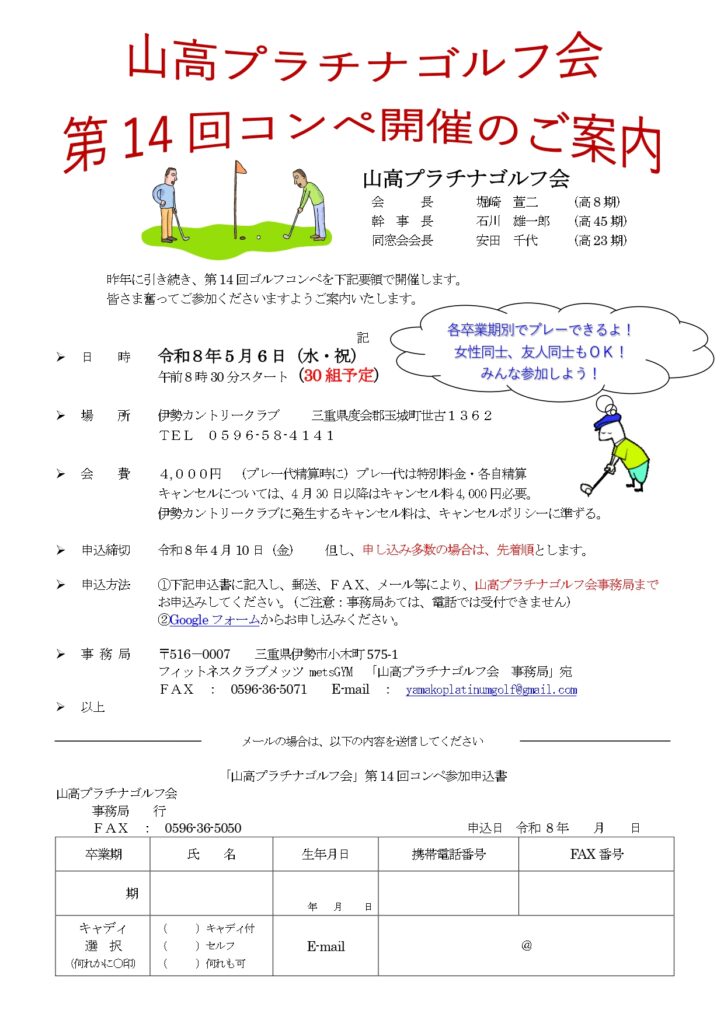 山高プラチナゴルフ会
第14回コンペ開催のご案内
山高プラチナゴルフ会
会　　長　　堀崎　萱二　　(高8期)
幹 事 長　　石川　雄一郎　　(高45期)
同窓会会長　　安田　千代　　(高23期)
昨年に引き続き、第14回ゴルフコンペを下記要領で開催します。
皆さま奮ってご参加くださいますようご案内いたします。
各卒業期別でプレーできるよ！
女性同士、友人同士もＯＫ！
みんな参加しよう！
記
➢ 日　　時　　令和８年５月６日（水・祝）
午前８時30分スタート（30組予定）
➢ 場　　所　　伊勢カントリークラブ　　三重県度会郡玉城町世古１３６２
ＴＥＬ　０５９６-５８-４１４１
➢ 会　　費　　４,０００円　（プレー代精算時に）プレー代は特別料金・各自精算
キャンセルについては、4月30日以降はキャンセル料4,000円必要。
伊勢カントリークラブに発生するキャンセル料は、キャンセルポリシーに準ずる。
➢ 申込締切　　令和８年４月10日（金）　　但し、申し込み多数の場合は、先着順とします。
➢ 申込方法　　①下記申込書に記入し、郵送、ＦＡＸ、メール等により、山高プラチナゴルフ会事務局まで
お申込みしてください。（ご注意：事務局あては、電話では受付できません）
②Googleフォームからお申し込みください。
➢ 事 務 局　　〒516－0007　　三重県伊勢市小木町575-1
フィットネスクラブメッツ metsGYM　「山高プラチナゴルフ会　事務局」宛
ＦＡＸ　：　0596-36-5071　　E-mail　：　yamakoplatinumgolf@gmail.com
➢ 以上
メールの場合は、以下の内容を送信してください
「山高プラチナゴルフ会」第14回コンペ参加申込書
山高プラチナゴルフ会
事務局　　行
ＦＡＸ　：　0596-36-5050　　申込日　令和 8年　　月　　日
卒業期　　氏　　名　　生年月日　　携帯電話番号　　FAX番号
期　　年　　月　　日
キャディ
選　択
(何れかに○印)
(　　　) キャディ付
(　　　) セルフ
(　　　) 何れも可
E-mail　　@